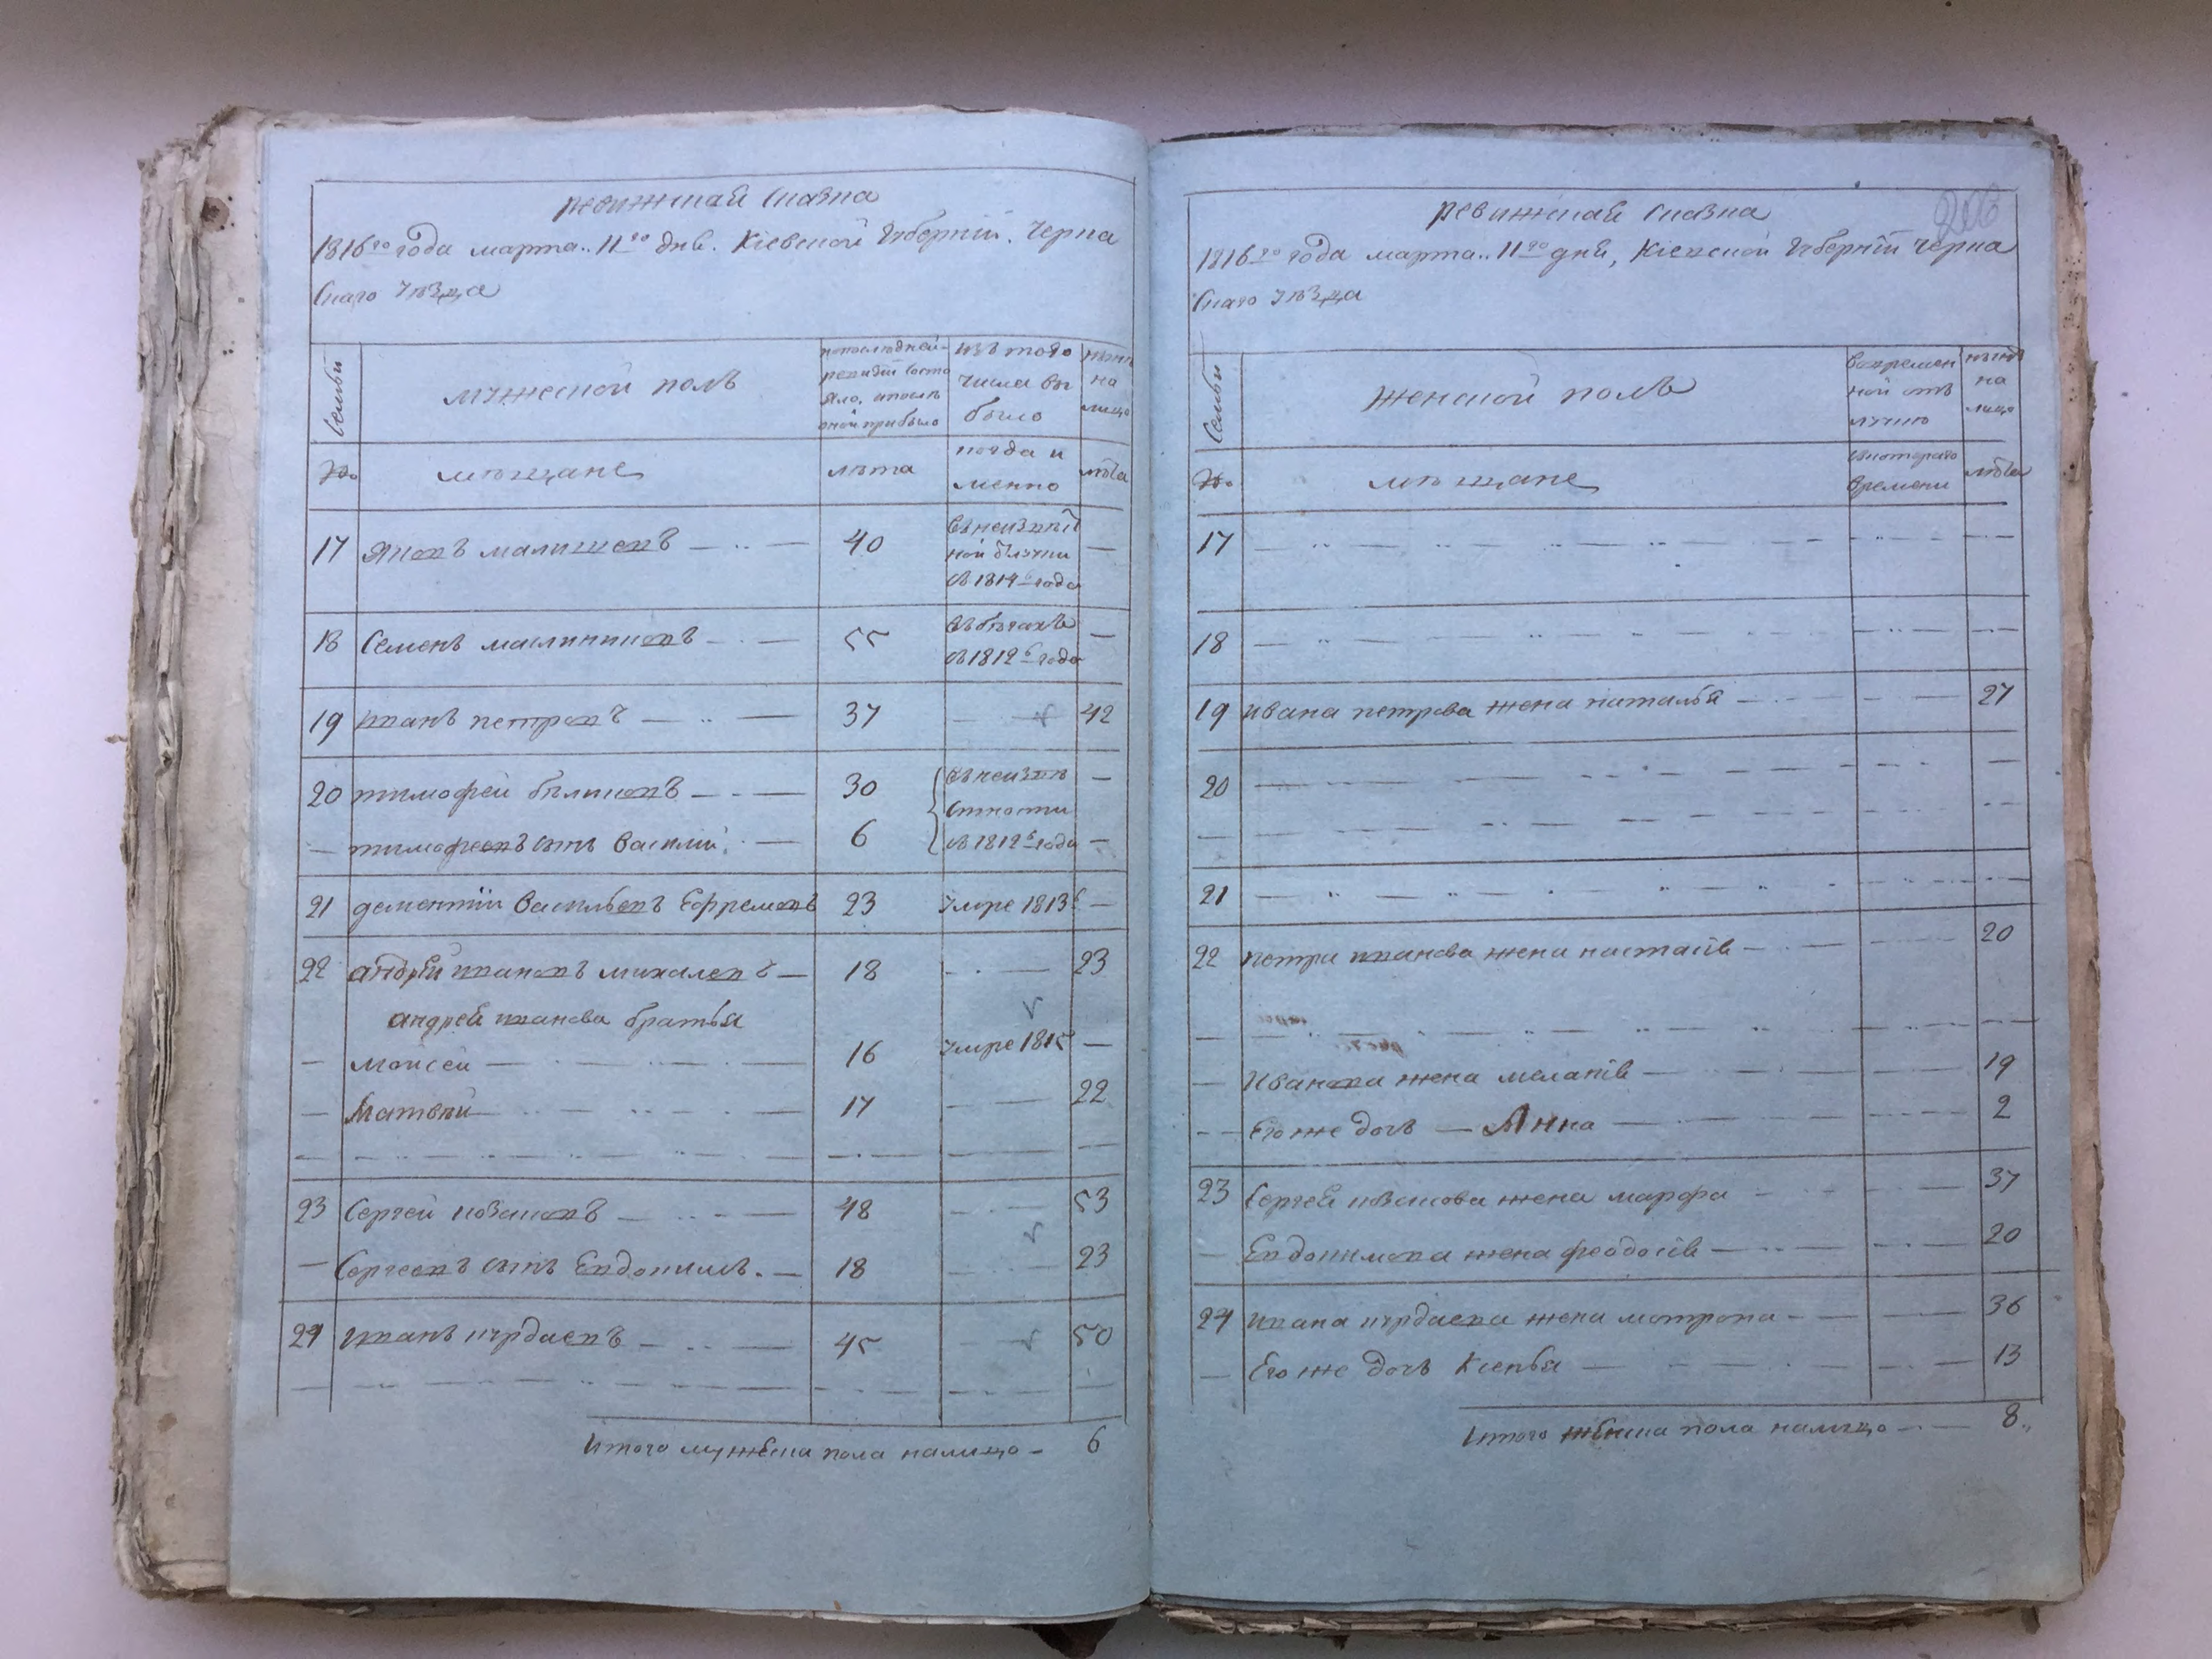 ревижская сказка
1816го года марта.. 11го дня. Кіевской Губерніи. Черка
скаго уѣзда
Семьи
мужеской полъ
по последней
ревизіи состо
яло. и после
оной прибыло
изъ того
числа вы
было
нынѣ
на
лицо
№.
мѣщане
лѣта
когда и
менно
лѣта
17 Яковъ малишевъ — 40
въ неизвѣст
ной отлучки
съ 1814г года —
18 Семенъ маслинниковъ — 55
въ бѣгахъ
съ 1812г года —
19 иванъ петровъ — 37 — 42
20 тимофей бѣликовъ — 30
въ неизвѣ
стности
съ 1812г года —
— тимофеевъ сынъ Василий. — 6 —
21 дементій Васильевъ Ефремовъ 23 умре 1813г —
22 андрей ивановъ михалевъ — 18 — 23
андрея иванова братья
— Моисей — 16 умре 1815 —
— Матвѣй — 17 — 22
23 Сергей козаковъ — 48 — 53
— Сергеевъ сынъ Евдокимъ. — 18 — 23
24 иванъ курдаевъ — 45 — 50
Итого мужеска пола налицо — 6
ревижская сказка
1816го года марта.. 11го дня, Кіевской Губерніи Черка
скаго уѣзда
Семьи
женской полъ
во времен
ной отъ
лучки
нынѣ
на
лицо
№.
мѣщане
съ котораго
времени
лѣта
17 —
18 —
19 ивана петрова жена наталья — 27
20 —
21 —
22 петра иванова жена настасія — 20
— Иванова жена меланія — 19
— Его же дочь — Анна — 2
23 Сергея козакова жена марфа — 37
— Евдокимова жена феодосія — 20
24 ивана курдаева жена мотрона — 36
— Его же дочь Ксенья — 13
Итого женска пола налицо — 8..